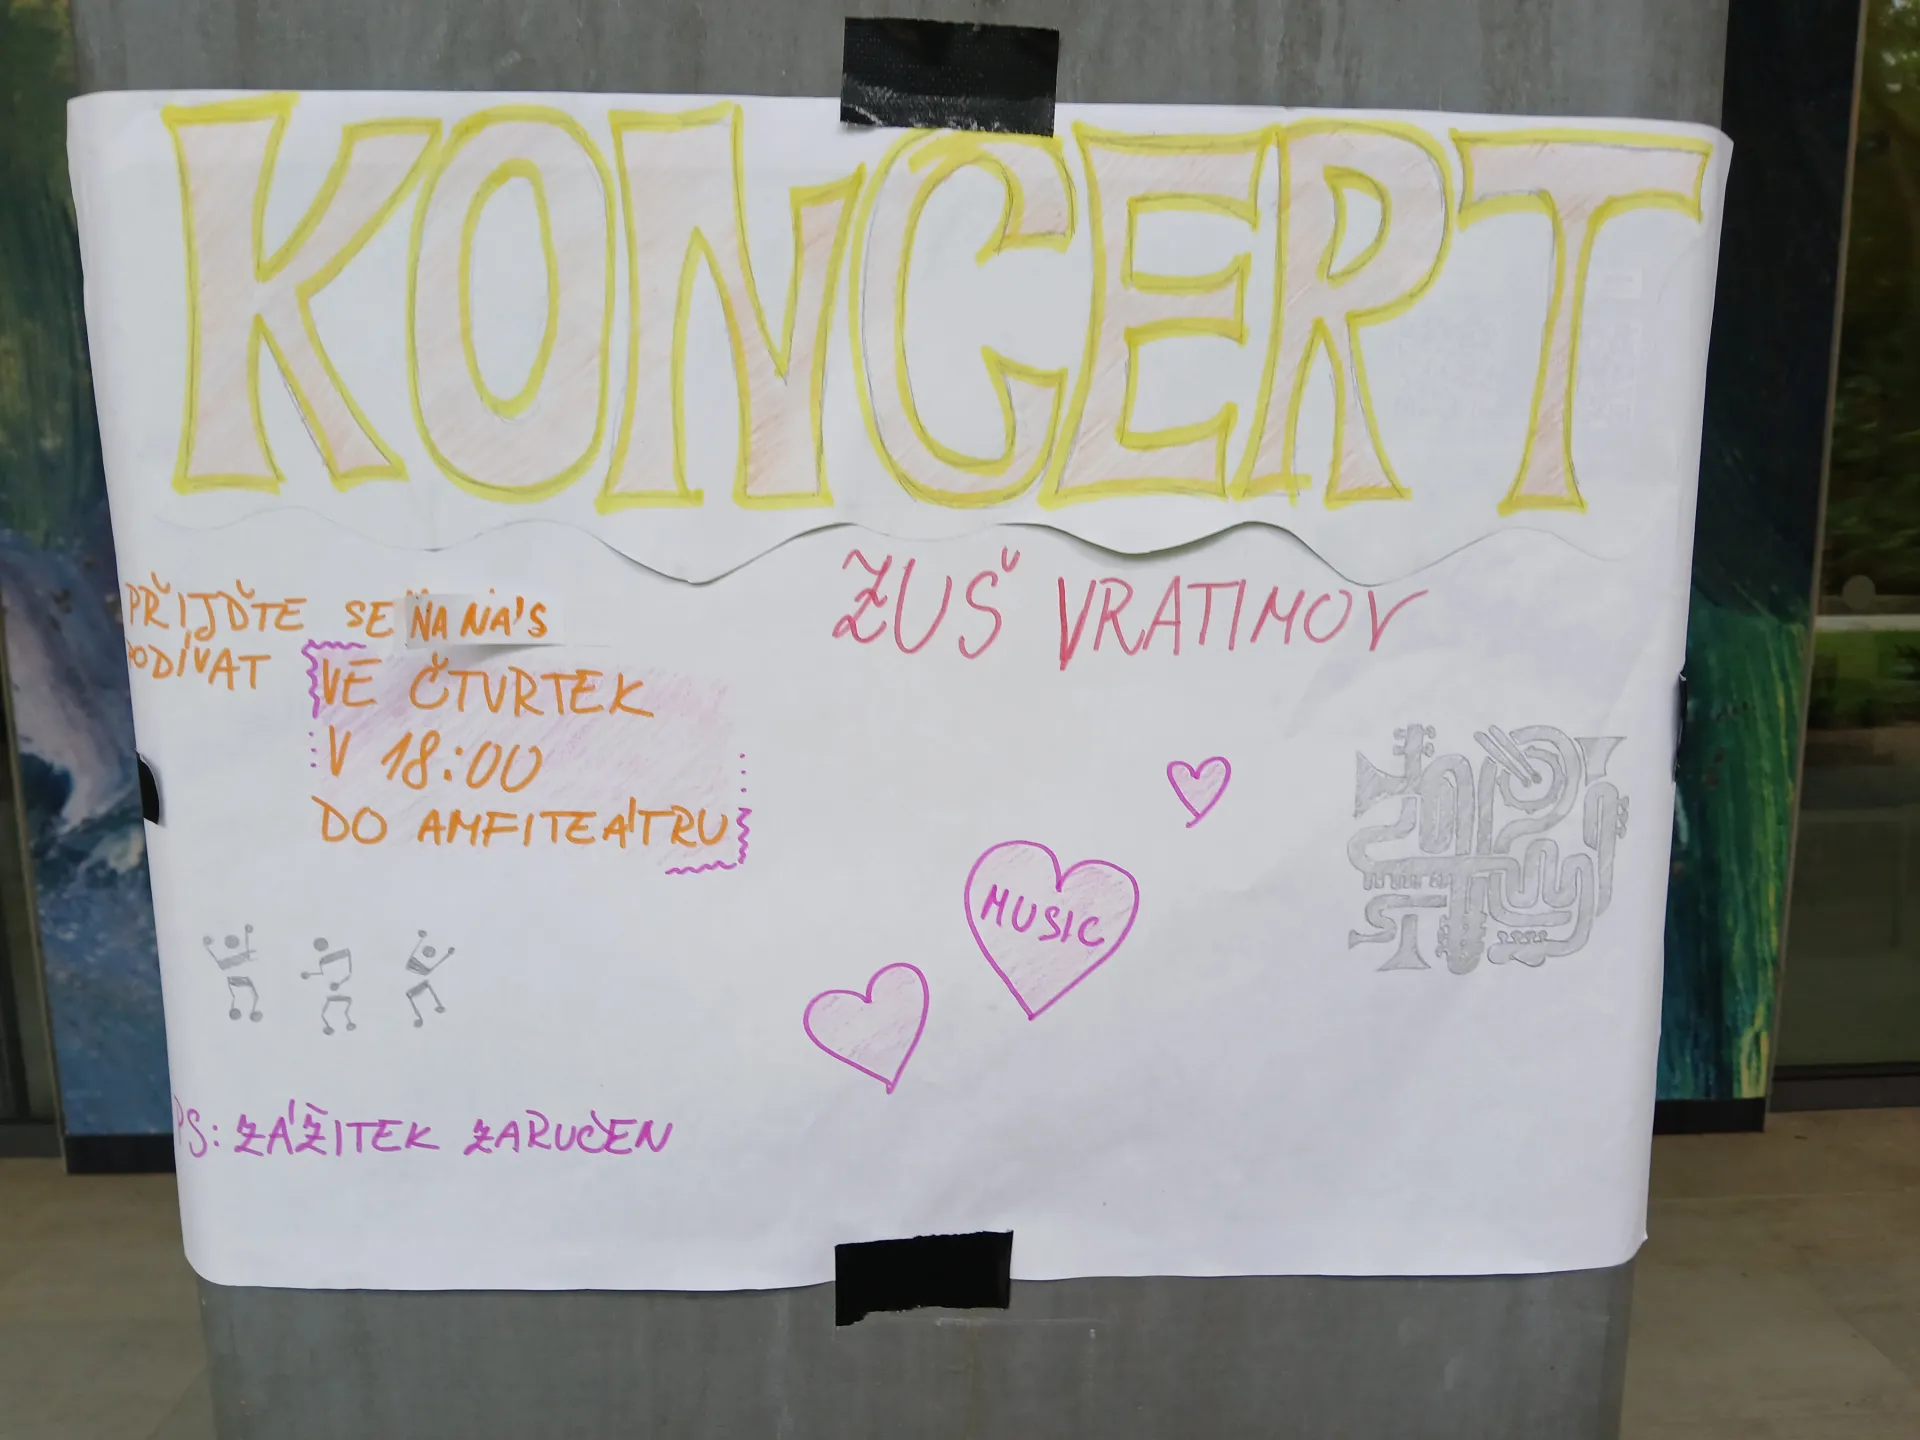 KONCERT
ZUŠ VRATIMOV
PŘIJĎTE SE NA NÁS
PODÍVAT
VE ČTVRTEK
V 18:00
DO AMFITEÁTRU
MUSIC
PS: ZÁŽITEK ZARUČEN